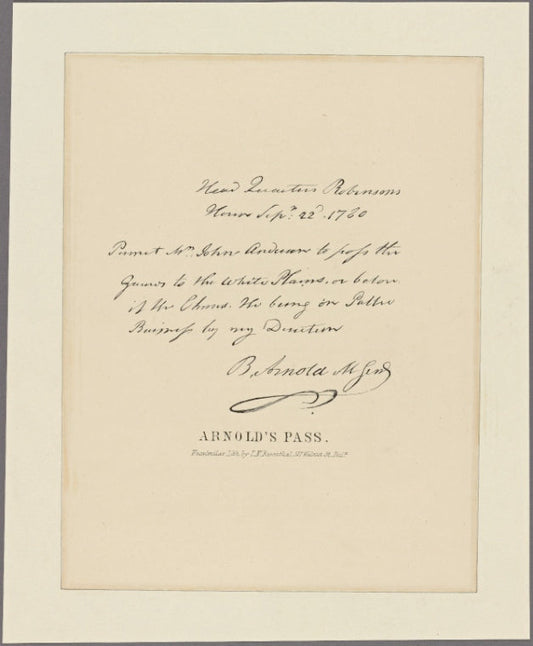 Head Quarters Robinsons
House Sepr. 22d. 1780
Permit Mr. John Anderson to pass the
Guards to the White Plains, or below
if He Chuses. He being on Public
Business by my Direction
B. Arnold M Genl
ARNOLD'S PASS.
Facsimiles Lith. by L. N. Rosenthal, Walnut St. Phila.